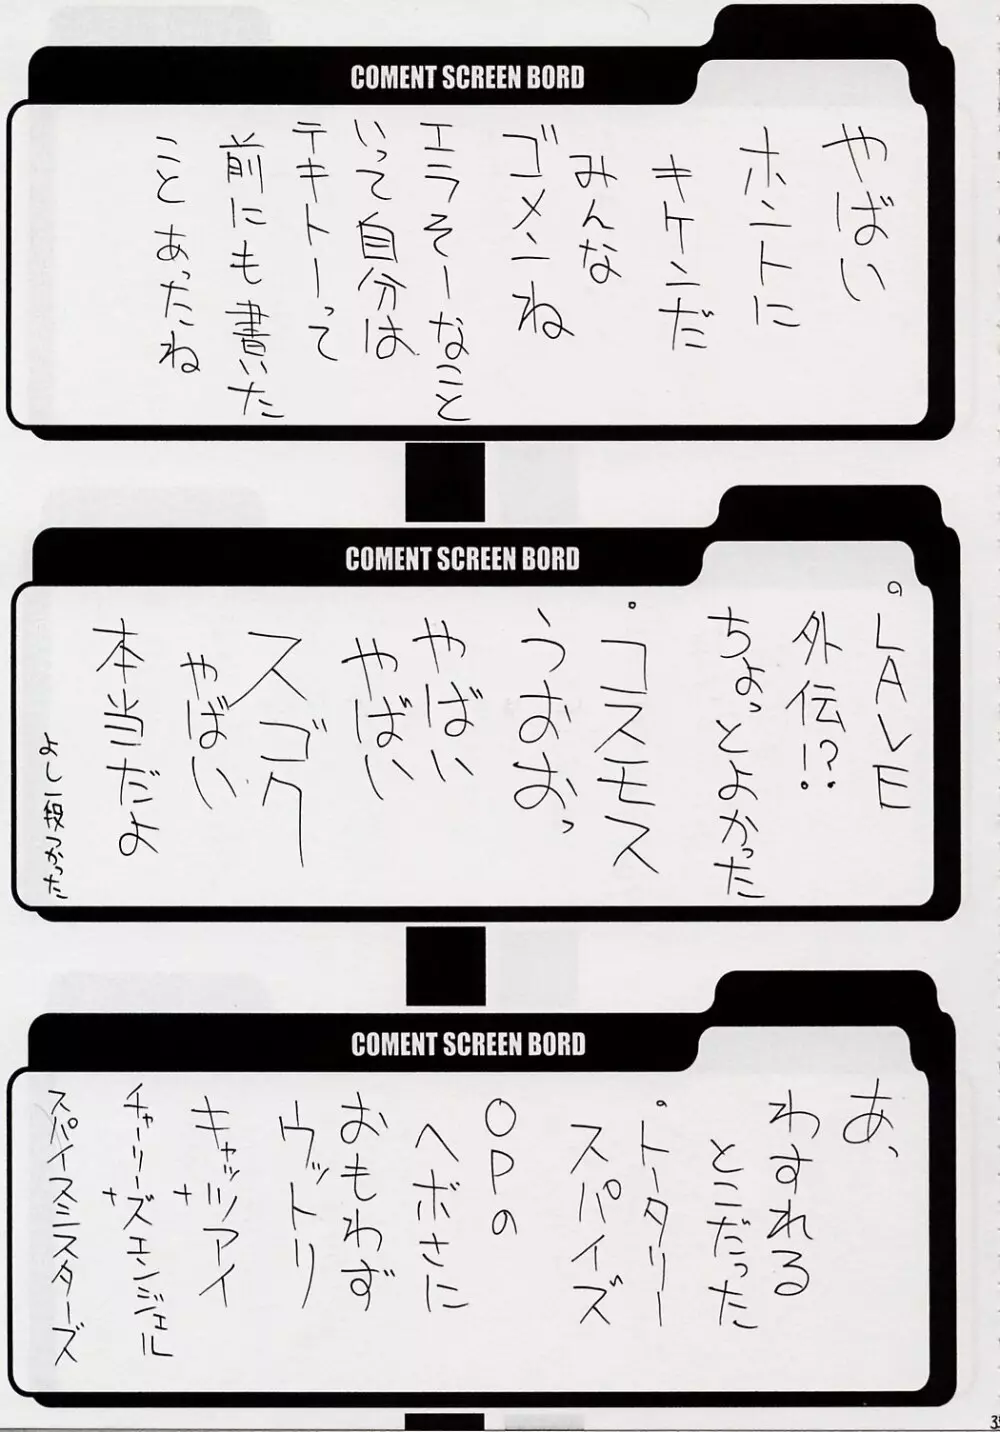 COMENT SCREEN BORD
やばい
ホントに
キケンだ
みんな
ゴメンね
エラそーなこと
いって自分は
テキトーって
前にも書いた
こと あったね
COMENT SCREEN BORD
。LAVE
外伝!?
ちょっとよかった
・コスモス
うおおっ
やばい
やばい
スゴク
やばい
本当だよ
よし一段つかった
COMENT SCREEN BORD
あ、
わすれる
とこだった
・トータリー
スパイズ
OPの
ヘボさに
おもわず
ウットリ
キャッツアイ
+
チャーリーズエンジェル
+
スパイスミスターズ